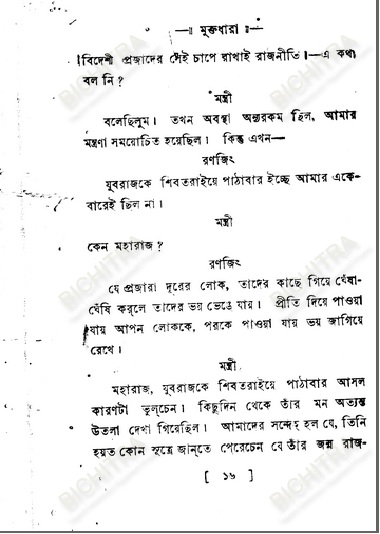 —॥ মুক্তধারা ॥—
বিদেশী প্রজাদের সেই চাপে রাখাই রাজনীতি।—এ কথা
বল নি?
মন্ত্রী
বলেছিলুম। তখন অবস্থা অন্যরকম ছিল, আমার
মন্ত্রণা সময়োচিত হয়েছিল। কিন্তু এখন—
রণজিৎ
যুবরাজকে শিবতরাইয়ে পাঠাবার ইচ্ছে আমার একে-
বারেই ছিল না।
মন্ত্রী
কেন মহারাজ?
রণজিৎ
যে প্রজারা দূরের লোক, তাদের কাছে গিয়ে ঘেঁষা-
ঘেঁষি করলে তাদের ভয় ভেঙে যায়। প্রীতি দিয়ে পাওয়া
যায় আপন লোককে, পরকে পাওয়া যায় ভয় জাগিয়ে
রেখে।
মন্ত্রী
মহারাজ, যুবরাজকে শিবতরাইয়ে পাঠাবার আসল
কারণটা ভুল্‌চেন। কিছুদিন থেকে তাঁর মন অত্যন্ত
উতলা দেখা গিয়েছিল। আমাদের সন্দেহ হল যে, তিনি
হয়ত কোন সূত্রে জান্‌তে পেরেচেন যে তাঁর জন্ম রাজ-
[ ১৬ ]
BICHITRA
BICHITRA
BICHITRA
BICHITRA
BICHITRA
BICHITRA